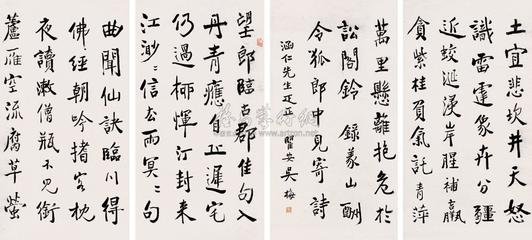 土宜悲坎井天怒
識雷霆象卉分疆
近蛟涎浸岸腥補羸
貪紫桂負氣託青萍
萬里懸離抱危於
訟閣鈴 錄義山酬
令狐郎中見寄詩
涵仁先生疋正 瞿安吳梅
望郎臨古郡佳句入
丹青應自丘遲宅
仍過柳惲汀封來
江渺渺信去雨冥冥句
曲聞仙訣臨川得
佛經朝吟搘客枕
夜讀漱僧瓶不見銜
蘆雁空流腐草螢